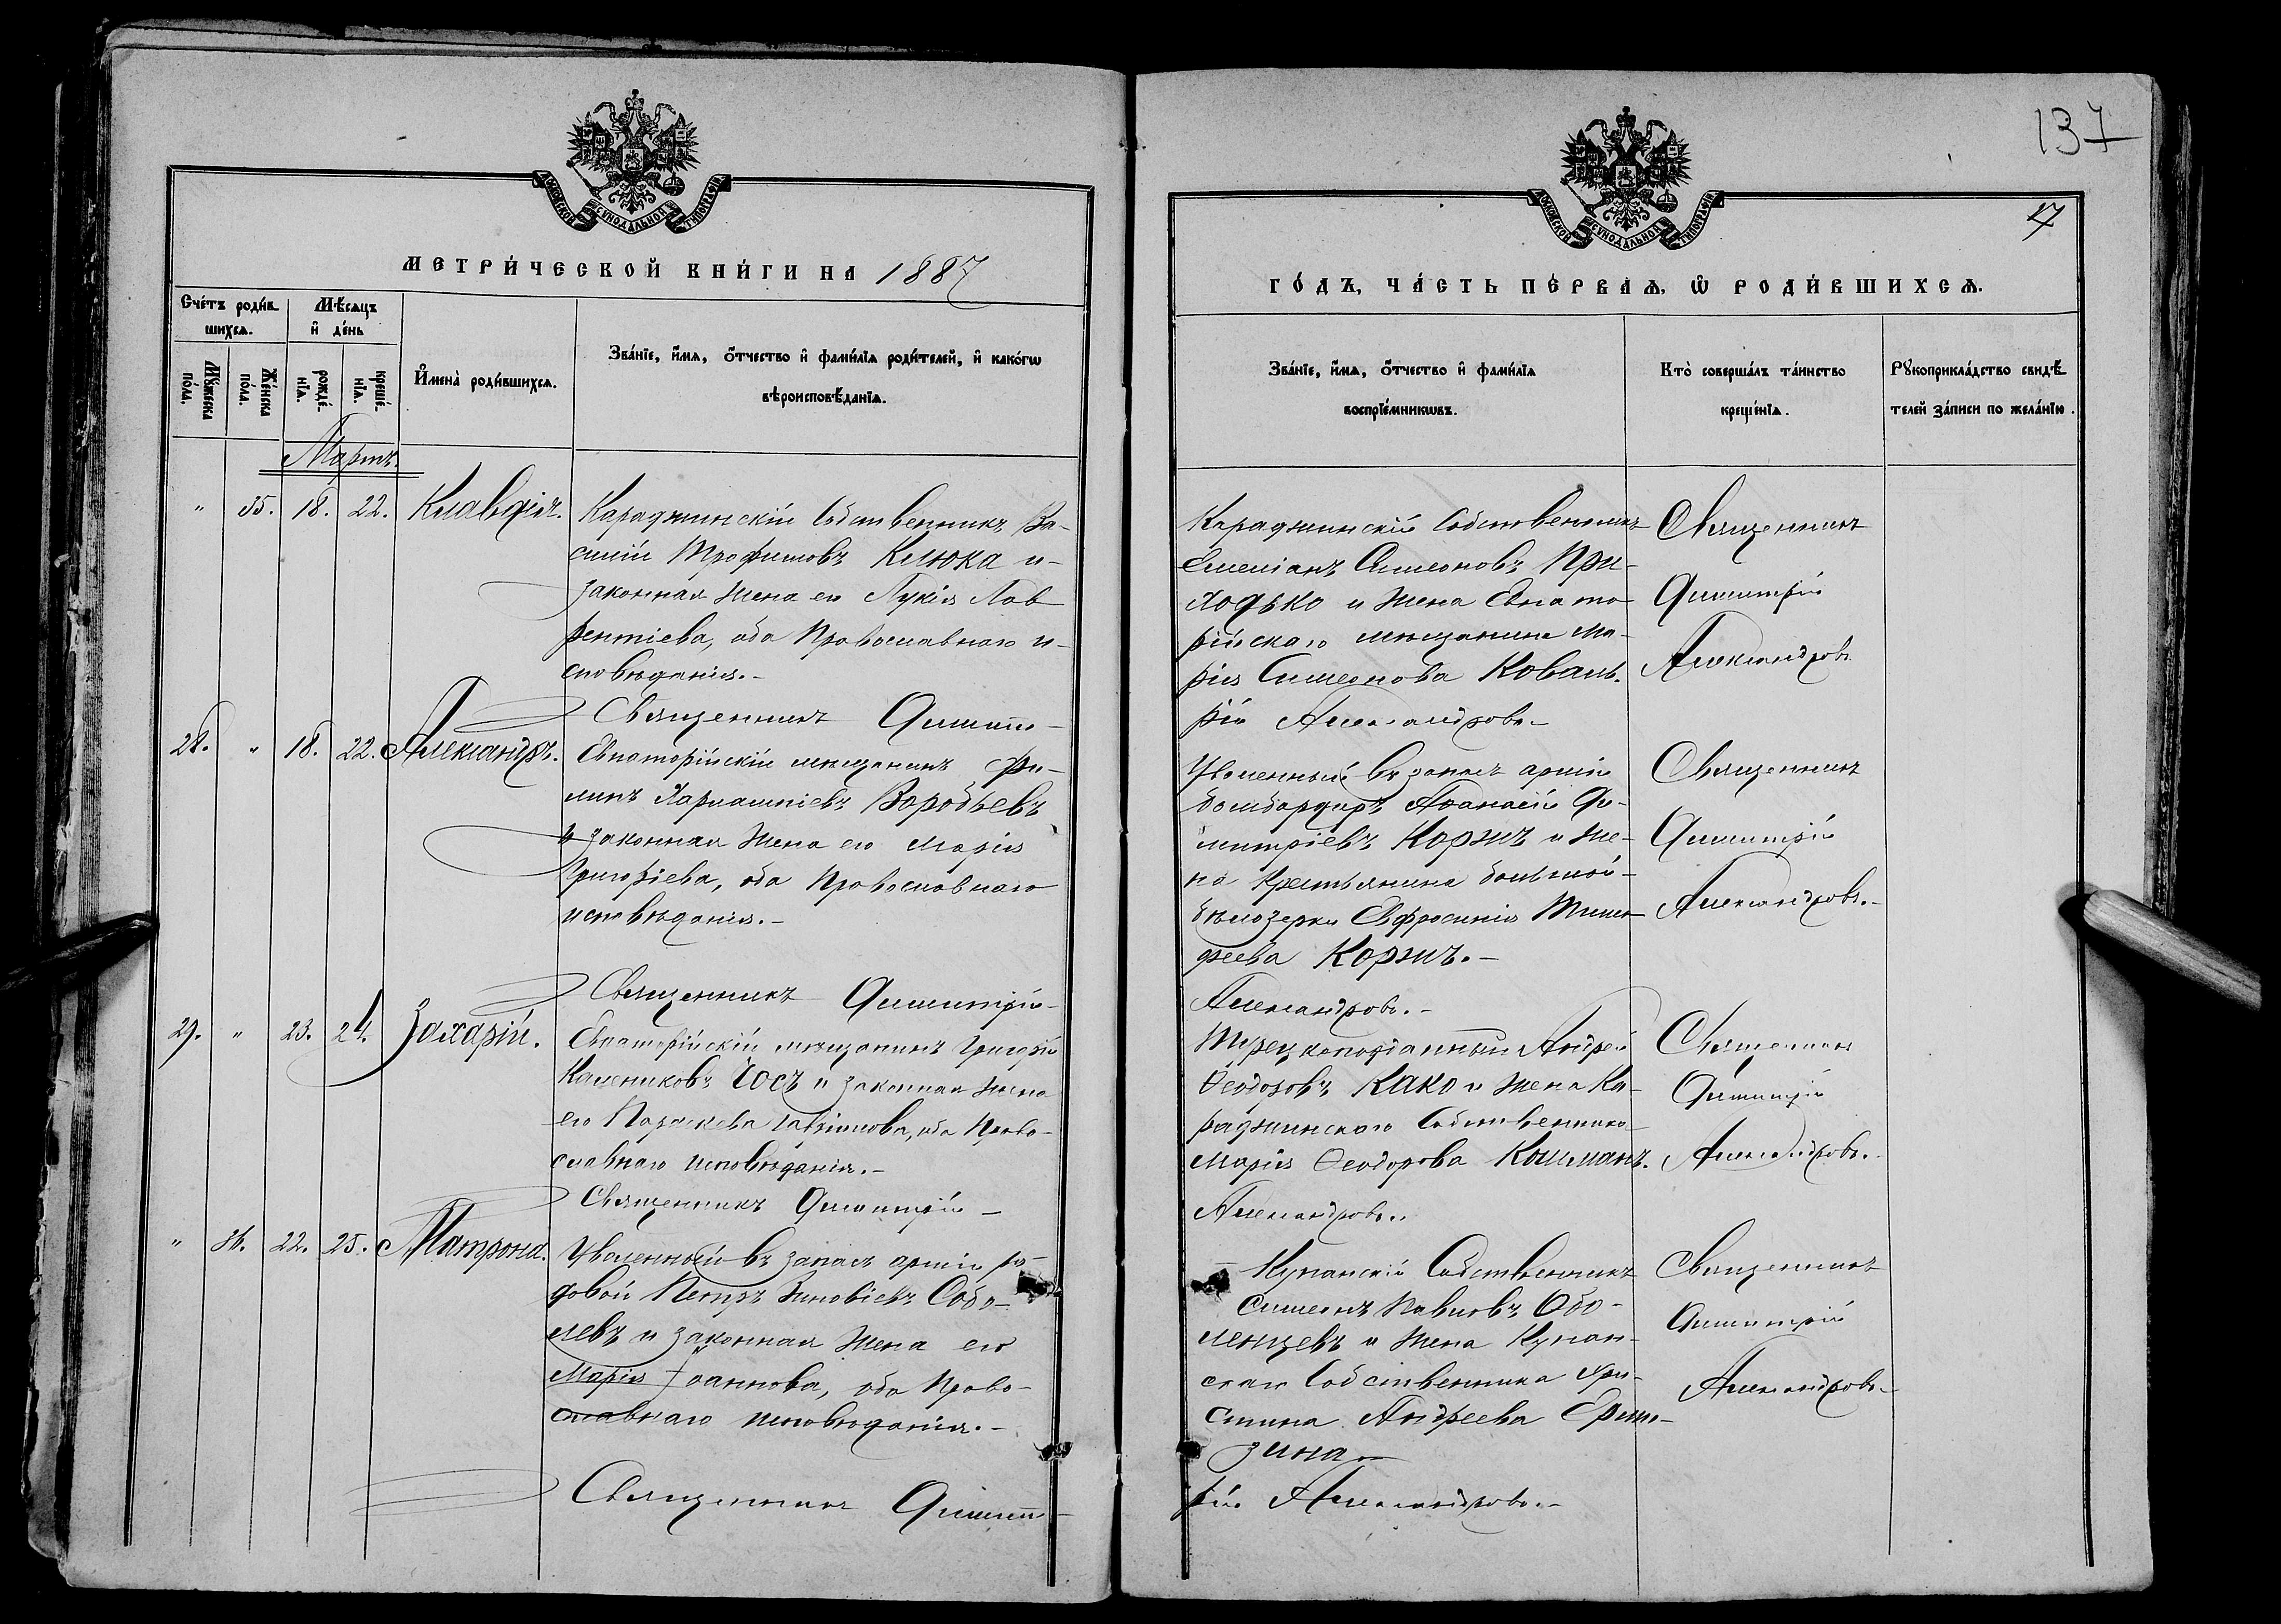 МОСКОВСКОЙ СѴНОДАЛЬНОЙ ТИПОГРАФІИ
МЕТРИ́ЧЕСКОЙ КНИ́ГИ НА 1887
Сче́тъ роди́в
шихсѧ.
Мѣ́сѧцъ
и҆ де́нь
Мꙋ́жеска
по́ла.
Же́нска
по́ла.
рожде́
нїѧ.
креще́
нїѧ.
И҆мена̀ роди́вшихсѧ.
Зва́нїе, и҆́мѧ, ѻ҆́тчество и҆ фами́лїѧ роди́телей, и҆ како́гѡ
вѣроисповѣ́данїѧ.
Мартъ.
" 35. 18. 22. Клавдія.
Караджинскій Собственникъ Ва-
силій Трофимовъ Клюка и
законная жена его Гликія Лав
рентіева, оба Православнаго и-
сповѣданія.-
Священникъ Димит-
28. " 18. 22. Александръ.
Евпаторійскій мѣщанинъ Фи-
липъ Харлампіевъ Воробьевъ
и законная жена его Марія
Григоріева, оба Православнаго
исповѣданія.-
Священникъ Димитрій-
29. " 23. 24. Захарій.
Евпаторійскій мѣщанинъ Григорій
Калениковъ Юсъ и законная жена
его Параскева Гавріилова, оба Право-
славнаго исповѣданія.-
Священникъ Димитрій -
" 36. 22. 25. Матрона.
Уволенный въ запасъ арміи ря-
довой Петръ Зиновіевъ Собо-
левъ и законная жена его
Марія Іоаннова, оба Право-
славнаго исповѣданія.-
Священникъ Димит-
137
17
МОСКОВСКОЙ СѴНОДАЛЬНОЙ ТИПОГРАФІИ
ГО́ДЪ, ЧА́СТЬ ПЕ́РВАѦ, Ѽ РОДИ́ВШИХСѦ.
Зва́нїе, и҆́мѧ, ѻ҆́тчество и҆ фами́лїѧ
воспрїе́мникѡвъ.
Кто̀ соверша́лъ та́инство
креще́нїѧ.
Рꙋкоприкла́дство свидѣ́
телей за́писи по жела́нїю.
Караджинскій Собственникъ
Емеліанъ Симеоновъ При-
ходько и жена Евпато-
рійскаго мѣщанина Ма-
рія Симеонова Коваль.
рій Александровъ.-
Священникъ
Димитрій
Александровъ
Уволенный въ запасъ арміи
бомбардиръ Аѳанасій Ди-
митріевъ Коржъ и же-
на Крестьянина большой-
бѣлозерки Евфросинія Тимо-
феева Коржъ.-
Александровъ.-
Священникъ
Димитрій
Александровъ.-
Турецкоподданный Андрей
Ѳеодоровъ Како и жена Ка-
раджинскаго Собственника
Марія Ѳеодорова Кошманъ.
Александровъ.
Священникъ
Димитрій
Александровъ.
Кунанскій Собственникъ
Симеонъ Павловъ Обо-
ленцевъ и жена Кунан-
скаго Собственника Хри-
стина Андреева Ерем-
зина
рій Александровъ.-
Священникъ
Димитрій
Александровъ.-